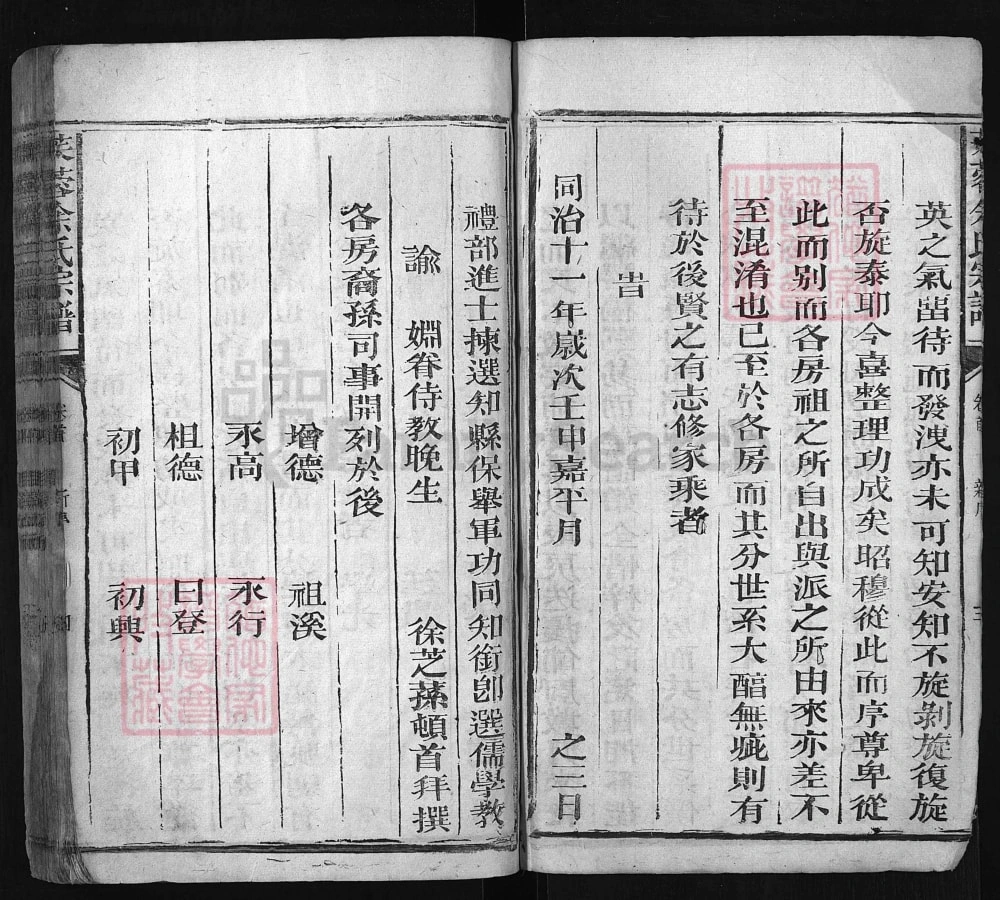 英之氣畱待而發洩亦未可知安知不旋剝旋復旋
否旋泰耶今喜整理功成矣昭穆從此而序尊卑從
此而别而各房祖之所自出與派之所由來亦差不
至混淆也已至於各房而其分世系大醕無疵則有
待於後賢之有志修家乘者
旹
同治十一年歲次壬申嘉平月 之三日
禮部進士揀選知縣保舉軍功同知銜卽選儒學教
諭 婣眷侍教晚生 徐芝蓀頓首拜撰
各房裔孫司事開列於後
增德 祖溪
永高 永行
柤德 曰登
初甲 初興
芙蓉徐氏宗譜 卷首